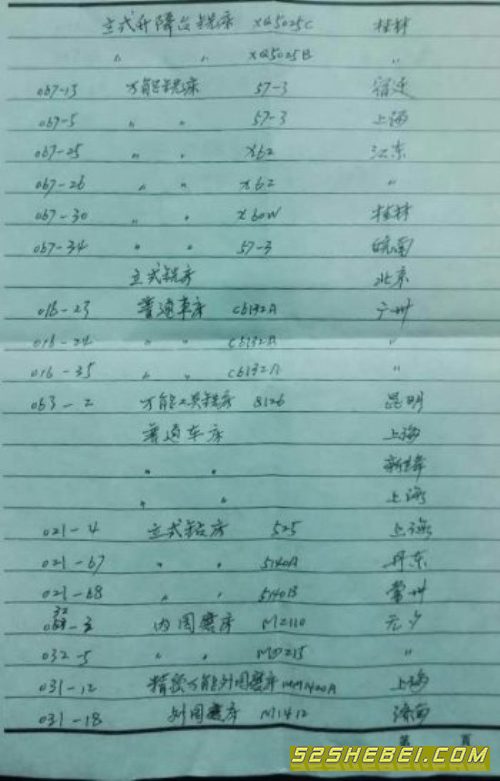 立式升降台铣床 XQ5025C 桂林
〃 〃 XQ5025B 〃
067-13 万能铣床 57-3 宿迁
067-5 〃 〃 57-3 上海
067-25 〃 〃 X62 江东
067-26 〃 〃 X62 〃
067-30 〃 〃 X60W 桂林
067-34 〃 〃 57-3 皖南
立式铣床 北京
016-23 普通车床 C6132A 广州
016-24 〃 〃 C6132A 〃
016-35 〃 〃 C6132A 〃
063-2 万能工具铣床 8126 昆明
普通车床 上海
〃 〃
〃 〃 上海
021-4 立式钻床 525 上海
021-67 〃 〃 5140A 丹东
021-68 〃 〃 5140B 常州
32
-3 内圆磨床 M2110 无夕
032-5 〃 〃 MD215 〃
031-12 精密万能外圆磨床 MM1420A 上海
031-18 外圆磨床 M1412 济南
第 页
52SHEBEI.COM